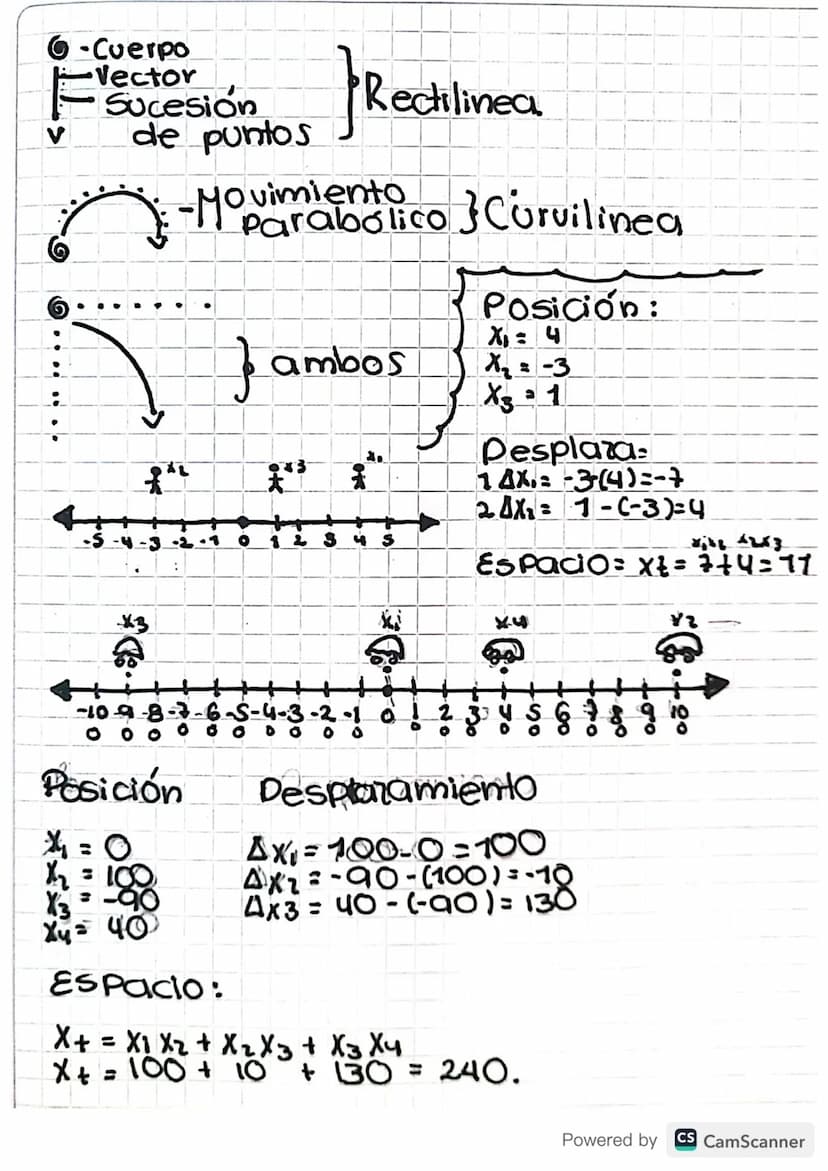 -Cuerpo
-Vector
- Sucesión
de puntos
} Rectilinea
-Movimiento
parabólico } Curvilinea
} ambos
Posición:
X₁ = 4
X₂ = -3
X₃ = 1
Desplaza=
1 ΔX₁ = -3-(4)=-7
2 ΔX₂ = 1-(-3)=4
x₁x₂ x₂x₃
Espacio= xt = 7+4=11
x₂ x₃ x₁
-5 -4 -3 -2 -1 0 1 2 3 4 5
x3 x₁ x4 x2
-100 -90 -80 -70 -60 -50 -40 -30 -20 -10 0 10 20 30 40 50 60 70 80 90 100
Posición
X₁ = 0
X₂ = 100
X₃ = -90
X₄ = 40
Desplazamiento
ΔX₁ = 100-0=100
ΔX₂ = -90-(100)=-10
ΔX3 = 40-(-90)= 130
Espacio:
X+ = X₁X₂ + X₂X₃ + X₃X₄
X+ = 100 + 10 + 130 = 240.
Powered by CS CamScanner